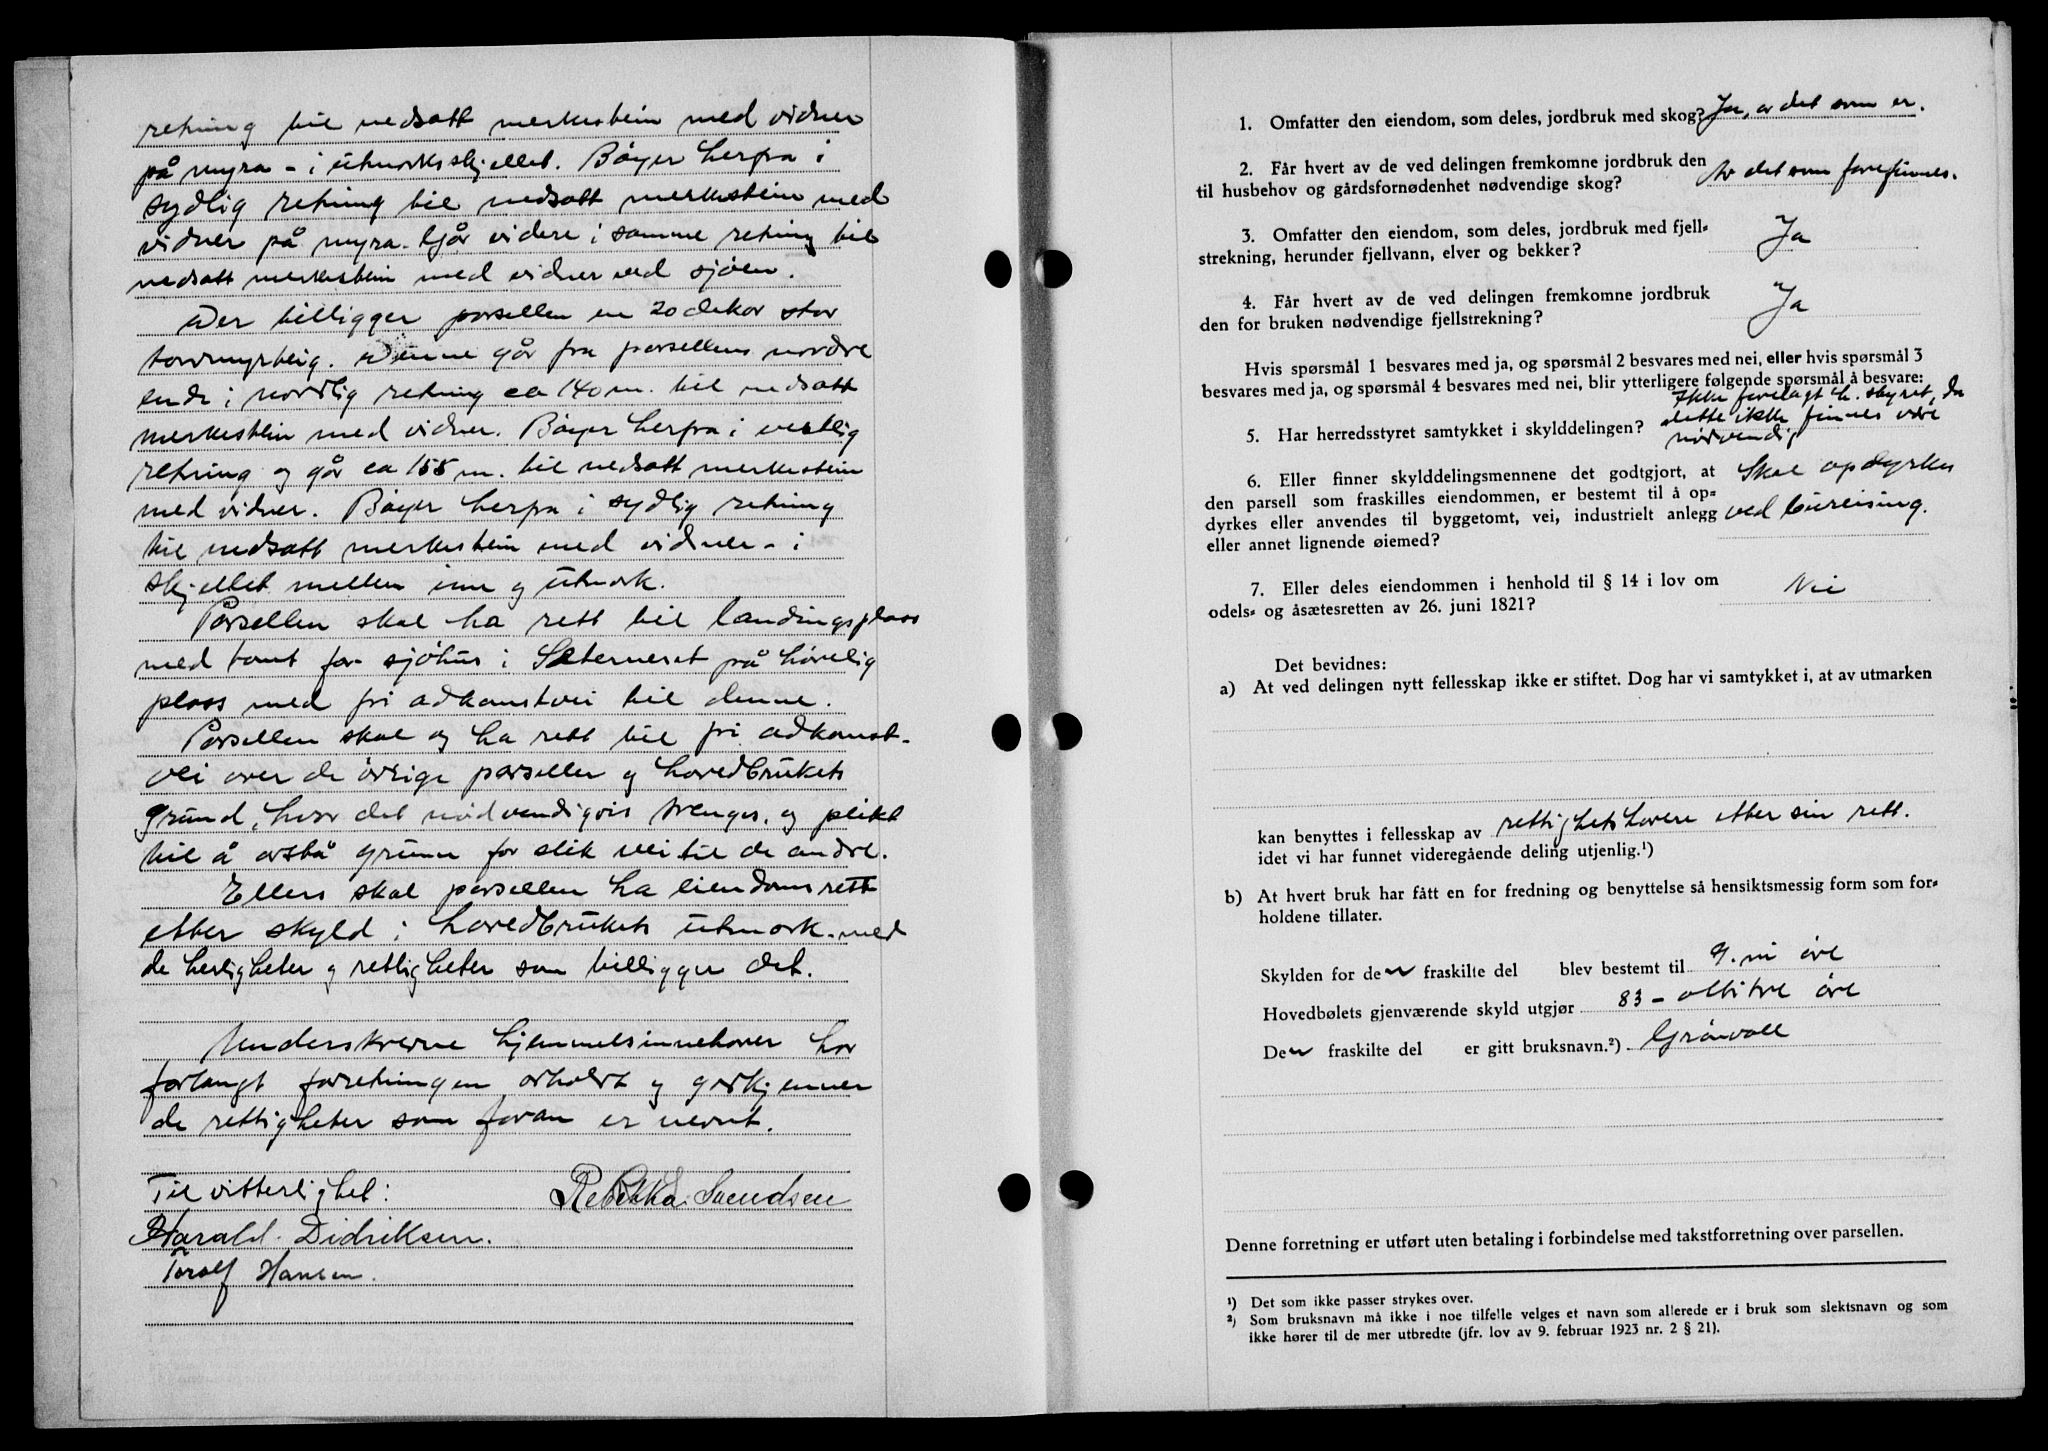 retning til nedsatt merkestein med vidner
på myra - i utmarksskjellet. Bøyer herfra i
sydlig retning til nedsatt merkestein med
vidner på myra. Går videre i samme retning til
nedsatt merkestein med vidner ved sjøen.
Der tilligger parsellen en 20 dekar stor
torvmyrteig. Denne går fra parsellens nordre
ende i nordlig retning ca 140 m. til nedsatt
merkestein med vidner. Bøyer herfra i vestlig
retning og går ca 155 m. til nedsatt merkestein
med vidner. Bøyer herfra i sydlig retning
til nedsatt merkestein med vidner - i
skjellet mellem inn og utmark.
Parsellen skal ha rett til landingsplass
med tomt for sjøhus i Sæterneset på høvelig
plass med fri adkomstvei til denne.
Parsellen skal og ha rett til fri adkomst-
vei over de øvrige parseller og hovedbrukets
grunn, hvor det nødvendigvis trenges, og plikt
til å avstå grunn for slik vei til de andre.
Ellers skal parsellen ha eiendomsrett
etter skyld i hovedbrukets utmark med
de herligheter og rettigheter som tilligger det.
Underskrevne hjemmelsinnehaver har
forlangt forretningen avholdt og godkjenner
de rettigheter som foran er nevnt.
Til vitterlighet: Rebekka Svendsen
Harald Didriksen.
Toralf Hansen.
1. Omfatter den eiendom, som deles, jordbruk med skog? Ja, av det som er.
2. Får hvert av de ved delingen fremkomne jordbruk den
til husbehov og gårdsfornødenhet nødvendige skog? Av det som forefinnes.
3. Omfatter den eiendom, som deles, jordbruk med fjell-
strekning, herunder fjellvann, elver og bekker? Ja
4. Får hvert av de ved delingen fremkomne jordbruk
den for bruken nødvendige fjellstrekning? Ja
Hvis spørsmål 1 besvares med ja, og spørsmål 2 besvares med nei, eller hvis spørsmål 3
besvares med ja, og spørsmål 4 besvares med nei, blir ytterligere følgende spørsmål å besvare:
5. Har herredsstyret samtykket i skylddelingen? Ikke forelagt h. styret, da
dette ikke finnes være
nødvendig
6. Eller finner skylddelingsmennene det godtgjort, at
den parsell som fraskilles eiendommen, er bestemt til å op-
dyrkes eller anvendes til byggetomt, vei, industrielt anlegg
eller annet lignende øiemed? Skal opdyrkes
ved bureising.
7. Eller deles eiendommen i henhold til § 14 i lov om
odels- og åsætesretten av 26. juni 1821? Nei
Det bevidnes:
a) At ved delingen nytt fellesskap ikke er stiftet. Dog har vi samtykket i, at av utmarken
kan benyttes i fellesskap av rettighetshavere etter sin rett.
idet vi har funnet videregående deling utjenlig.¹)
b) At hvert bruk har fått en for fredning og benyttelse så hensiktsmessig form som for-
holdene tillater.
Skylden for den fraskilte del blev bestemt til 9. ni øre
Hovedbølets gjenværende skyld utgjør 83 - ottitre øre
Den fraskilte del er gitt bruksnavn.²) Grønvoll
Denne forretning er utført uten betaling i forbindelse med takstforretning over parsellen.
¹) Det som ikke passer strykes over.
²) Som bruksnavn må ikke i noe tilfelle velges et navn som allerede er i bruk som slektsnavn og som
ikke hører til de mer utbredte (jfr. lov av 9. februar 1923 nr. 2 § 21).